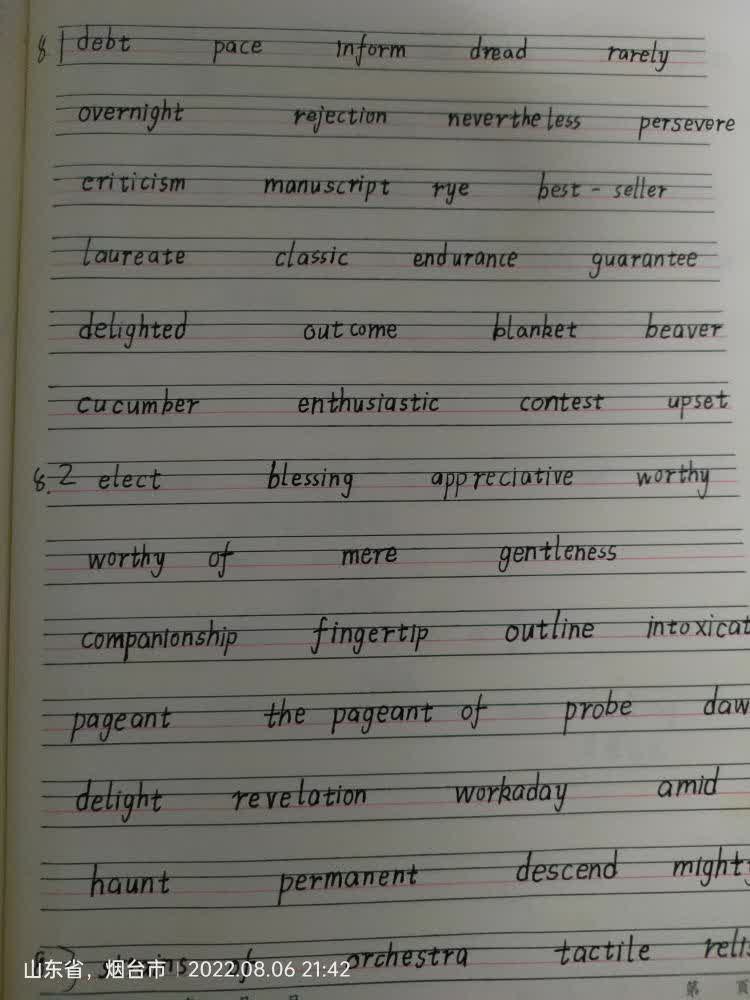 8.1 debt pace inform dread rarely
overnight rejection nevertheless persevere
criticism manuscript rye best-seller
laureate classic endurance guarantee
delighted outcome blanket beaver
cucumber enthusiastic contest upset
8.2 elect blessing appreciative worthy
worthy of mere gentleness
companionship fingertip outline intoxicat
pageant the pageant of probe daw
delight revelation workaday amid
haunt permanent descend mighty
of orchestra tactile relis
山东省，烟台市 | 2022.08.06 21:42
第 頁